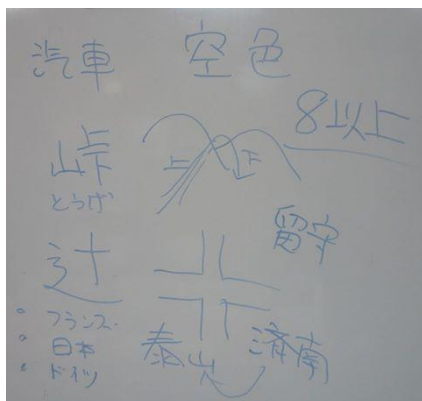 汽車 空色
8以上
峠 上 下
とうげ
留守
辻
フランス
日本
ドイツ
泰山 済南